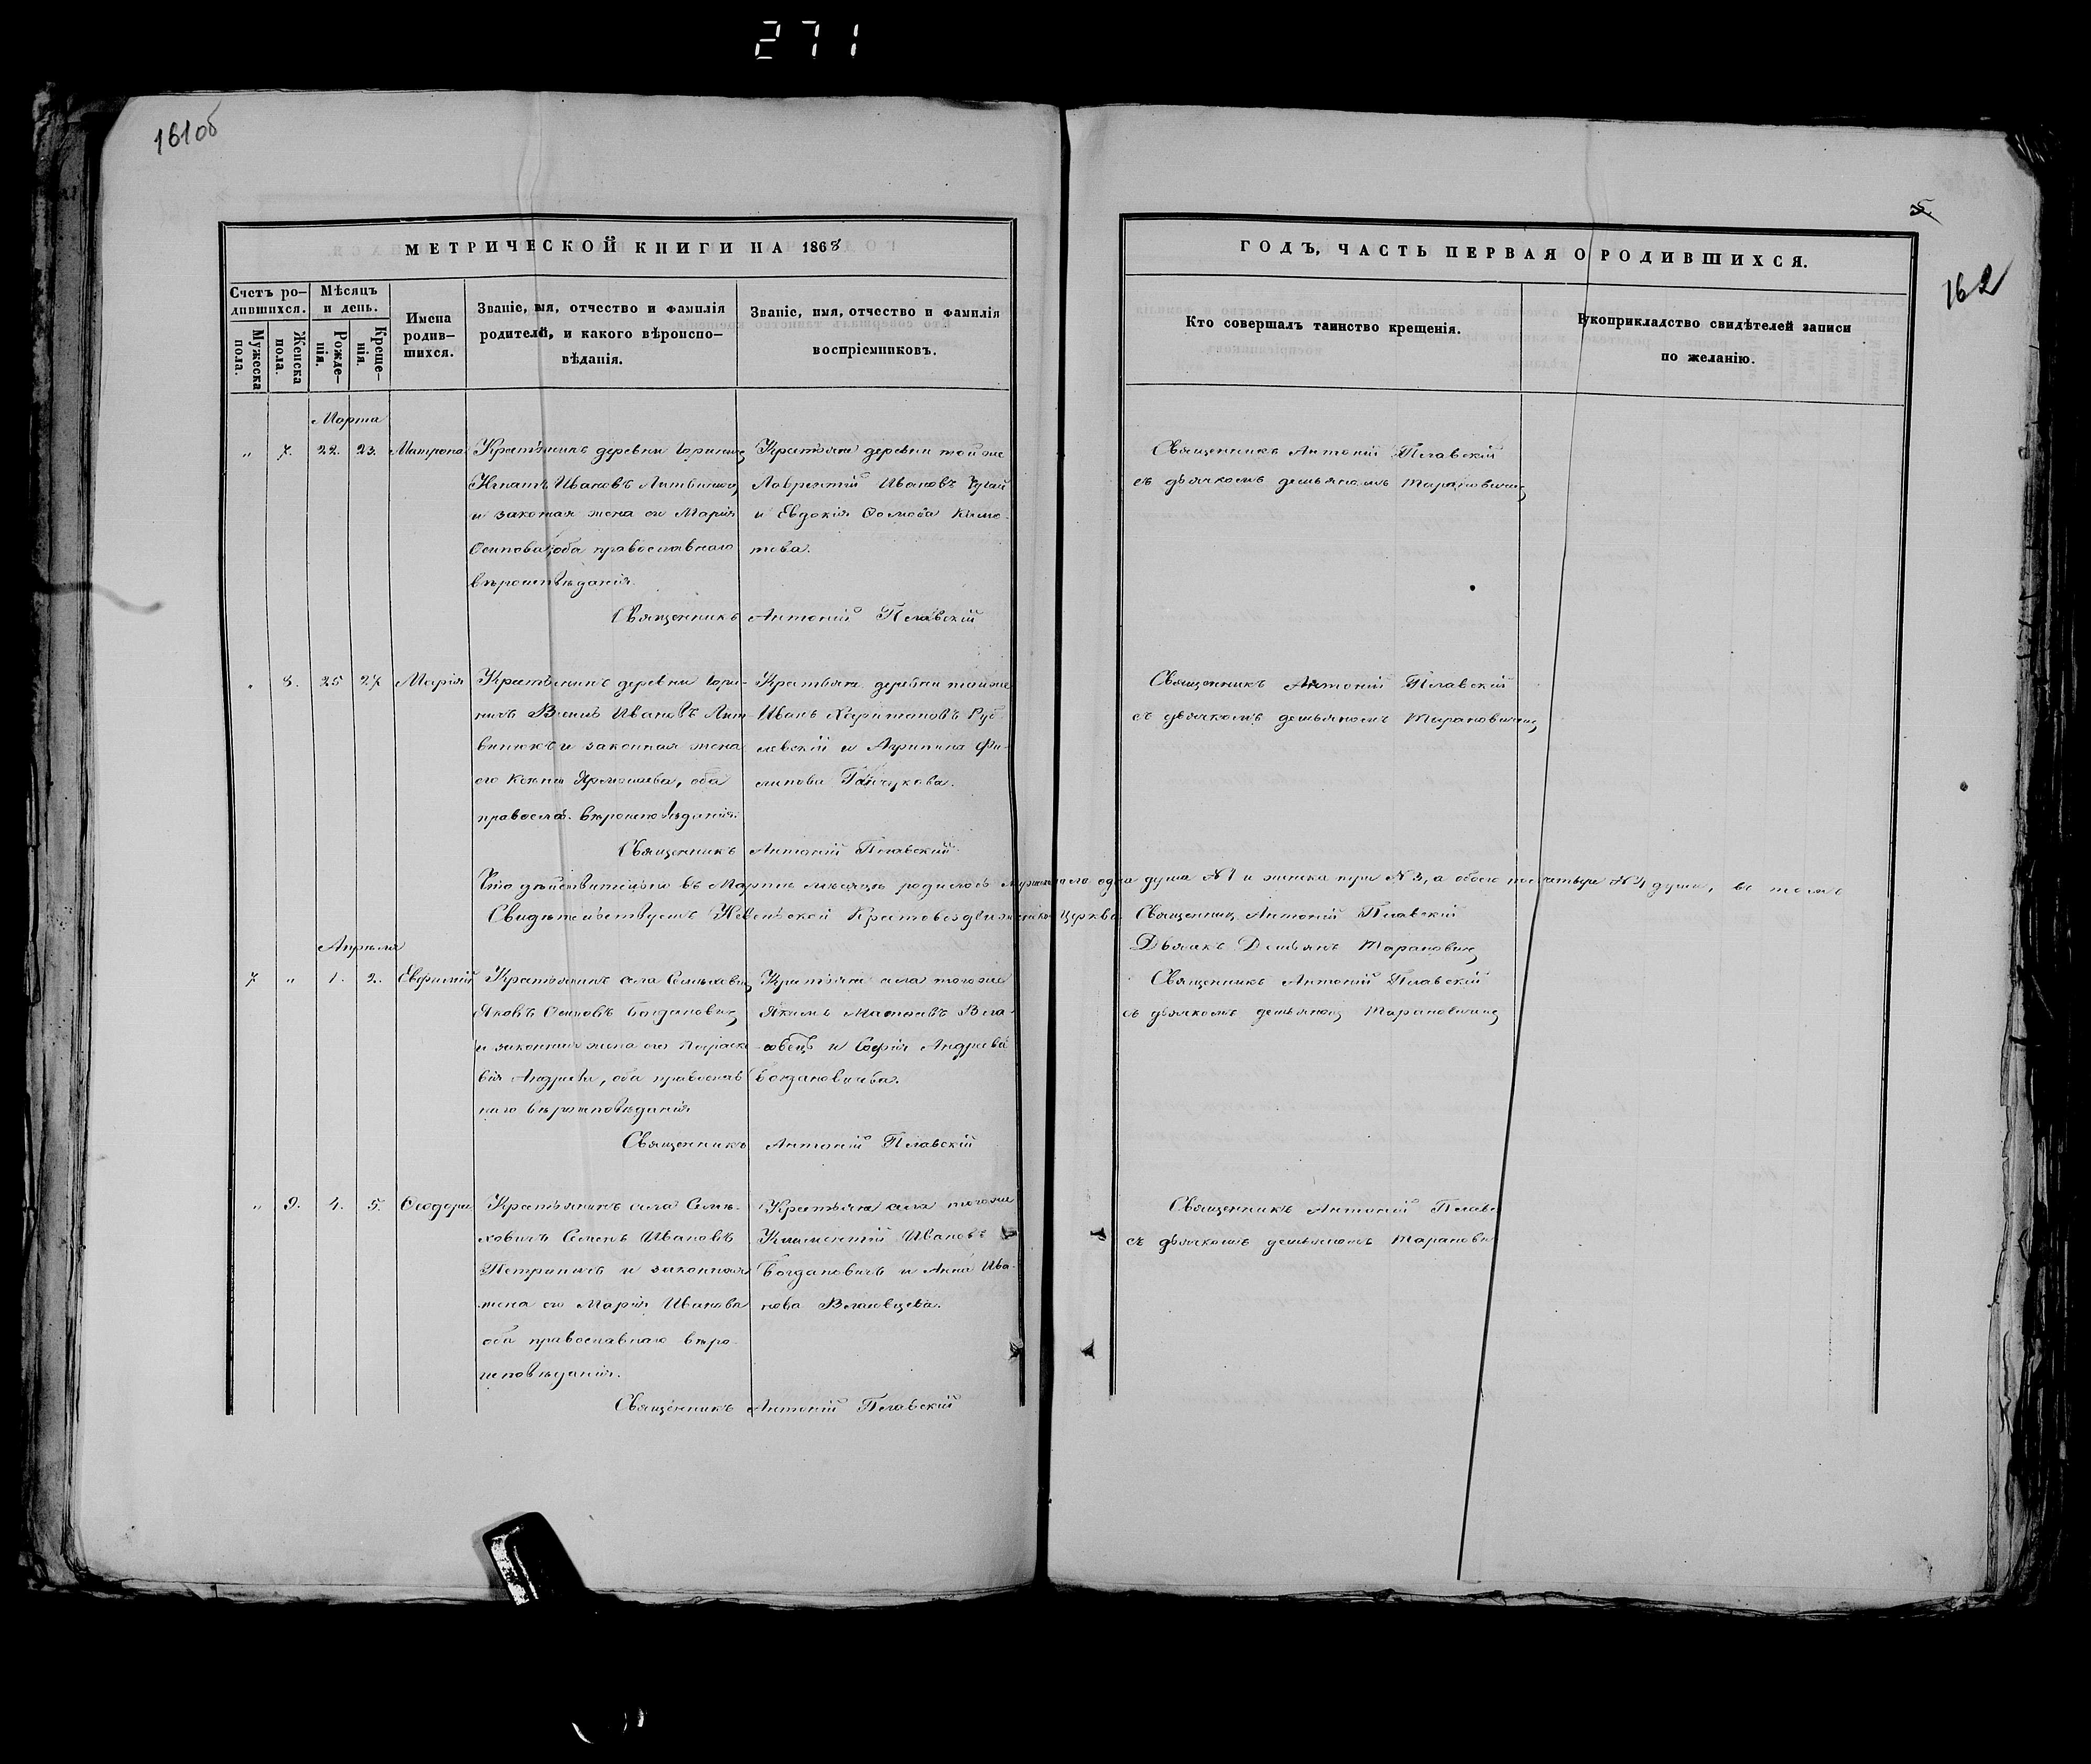 271
161об
МЕТРИЧЕСКОЙ КНИГИ НА 1868
Счетъ ро-
дившихся.
Мѣсяцъ
и день.
Мужеска
пола.
Женска
пола.
Рожде-
нія.
Креще-
нія.
Имена
родив-
шихся.
Званіе, имя, отчество и фамилія
родителей, и какого вѣроиспо-
вѣданія.
Званіе, имя, отчество и фамилія
воспріемниковъ.
Марта
" 7. 22. 23. Матрона
Крестьянинъ деревни
Игнатъ Ивановъ
и законная жена его Марія
Осипова, оба православнаго
вѣроисповѣданія.
Крестьяне деревни тойже
Лаврентій Ивановъ
и Евдокія
Священникъ Антоній Плавскій
" 8. 25 27 Марія
Крестьянинъ деревни
Ивановъ Лит-
винюкъ и законная жена
его Ксенія, оба
правосл. вѣроисповѣданія.
Крестьяне деревни тойже
Иванъ Харитоновъ
и Агрипина Фи-
липова
Священникъ Антоній Плавскій
Что дѣйствительно въ Мартѣ мѣсяцѣ родилось одна душа №1 и женска три №3, а обоего четыре №4 души, въ томъ
Свидѣтельствуемъ Крестовоздвиженской Церкви Священникъ Антоній Плавскій
Дьячекъ Демьянъ Тарановичъ
Апрѣля
7 " 1. 2. Евфимій
Крестьянинъ села
Яковъ Осиповъ Богдановичъ
и законная жена его Параске-
вія Андреева, оба православ-
наго вѣроисповѣданія
Крестьяне села тогоже
Якимъ
и Софія Андреева
Богдановичева.
Священникъ Антоній Плавскій
" 9. 4. 5. Ѳеодора
Крестьянинъ села Семи-
ховичъ Семенъ Ивановъ
и законная
жена его Марія Иванова
оба православнаго вѣро-
исповѣданія.
Крестьяне села тогоже
Климентій Ивановъ
Богдановичъ и Анна Ива-
нова
Священникъ Антоній Плавскій
5.
162
ГОДЪ, ЧАСТЬ ПЕРВАЯ О РОДИВШИХСЯ.
Кто совершалъ таинство крещенія.
Рукоприкладство свидѣтелей записи
по желанію.
Священникъ Антоній Плавскій
съ дьячкомъ демьяномъ Тарановичемъ
Священникъ Антоній Плавскій
съ дьячкомъ демьяномъ Тарановичемъ
Священникъ Антоній Плавскій
съ дьячкомъ демьяномъ Тарановичемъ
Священникъ Антоній Плавс
съ дьячкомъ демьяномъ Таранови